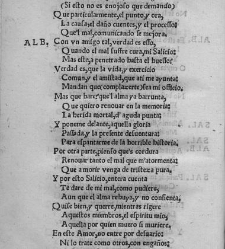 (Si esto no es enojoso que demando)
Que particularmente, el punto, y ora,
La causa, el daño cuentes, y el processo:
Que'l mal, comunicando se mejora.
ALB. Con vn amigo tal, verdad es esso,
Quando el mal sufre cura, mi Salicio;
Mas este, a penetrado hasta el huesso.
Verdad es, que la vida, y exercicio
Comun, y el amistad, que asi me ayunta,
Mandan que complacerte sea mi oficio.
Mas que hare? que'l alma ya barrunta,
Que quiero renovar en la memoria
La herida mortal, d'aguda punta:
Y poneme delante, aquella gloria
Passada, y la presente desventura:
Para espantarme de la horrible historia.
Por otra parte, pienso qu'es cordura
Renovar tanto el mal que m'atormenta;
Que a morir venga de tristeza pura.
Y por esto Salicio, entera cuenta
Te daré de mi mal, como pudiere,
Aun que el alma rehuya, y no consienta.
Quise bien, y querré, mientras rigere
Aquestos miembros, el espiritu mio,
Aquella por quien muero si muriere.
En este Amor, no entre por desvario:
Ni lo trate como otros, con engaños;